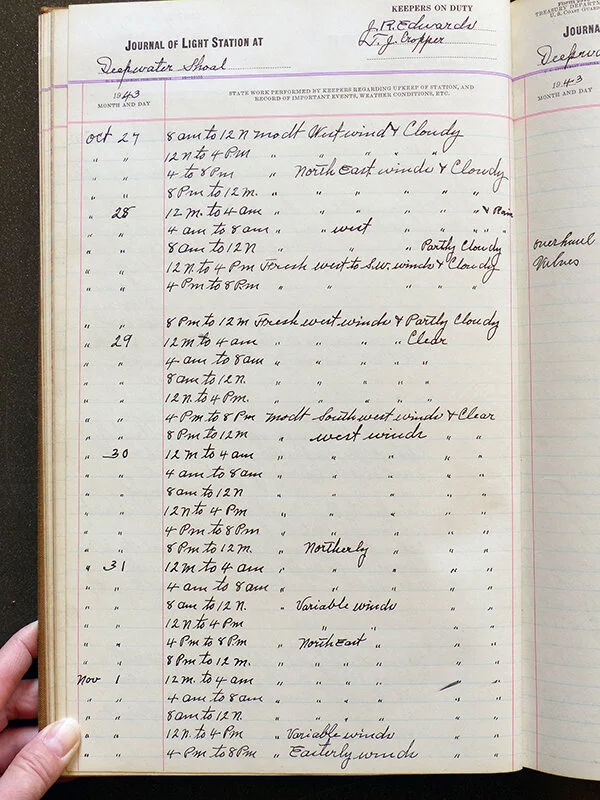 KEEPERS ON DUTY
J.R. Edwards
JOURNAL OF LIGHT STATION AT
T. J. Cropper
Deepwater Shoal
1943
MONTH AND DAY
STATE WORK PERFORMED BY KEEPERS REGARDING UPKEEP OF STATION, AND
RECORD OF IMPORTANT EVENTS, WEATHER CONDITIONS, ETC.
Oct 27 8 am to 12 N modt West wind & Cloudy
" " 12 N to 4 Pm " " " " "
" " 4 to 8 Pm " North East winds & Cloudy
" " 8 Pm to 12 m. " " " " " "
" 28 12 m. to 4 am " " " " " & Rain
" " 4 am to 8 am " " west " " " "
" " 8 am to 12 N " " " Partly Cloudy
" " 12 N to 4 Pm Fresh west to S.W. winds & Cloudy
" " 4 Pm to 8 Pm " " " " "
" " 8 Pm to 12 m Fresh west winds & Partly Cloudy
" 29 12 m to 4 am " " " " Clear
" " 4 am to 8 am " " " " "
" " 8 am to 12 N. " " " " "
" " 12 N. to 4 Pm. " " " " "
" " 4 Pm to 8 Pm modt South west winds & Clear
" " 8 Pm to 12 m " west winds " "
" 30 12 m to 4 am " " " " "
" " 4 am to 8 am " " " " "
" " 8 am to 12 N " " " " "
" " 12 N to 4 Pm " " " " "
" " 4 Pm to 8 Pm " " " " "
" " 8 Pm to 12 m. " Northerly " " "
" 31 12 m to 4 am " " " " "
" " 4 am to 8 am " " " " "
" " 8 am to 12 N. " Variable winds " "
" " 12 N to 4 Pm " " " "
" " 4 Pm to 8 Pm " North East " " "
" " 8 Pm to 12 m. " " " " "
Nov 1 12 m. to 4 am " " " "
" " 4 am to 8 am " " " " "
" " 8 am to 12 N. " " " " "
" " 12 N. to 4 Pm " Variable winds " "
" " 4 Pm to 8 Pm " Easterly winds " "
TREASURY DEPARTM
U. S. COAST GUAR
JOURNA
Deepwa
1943
MONTH AND DAY
overhaul